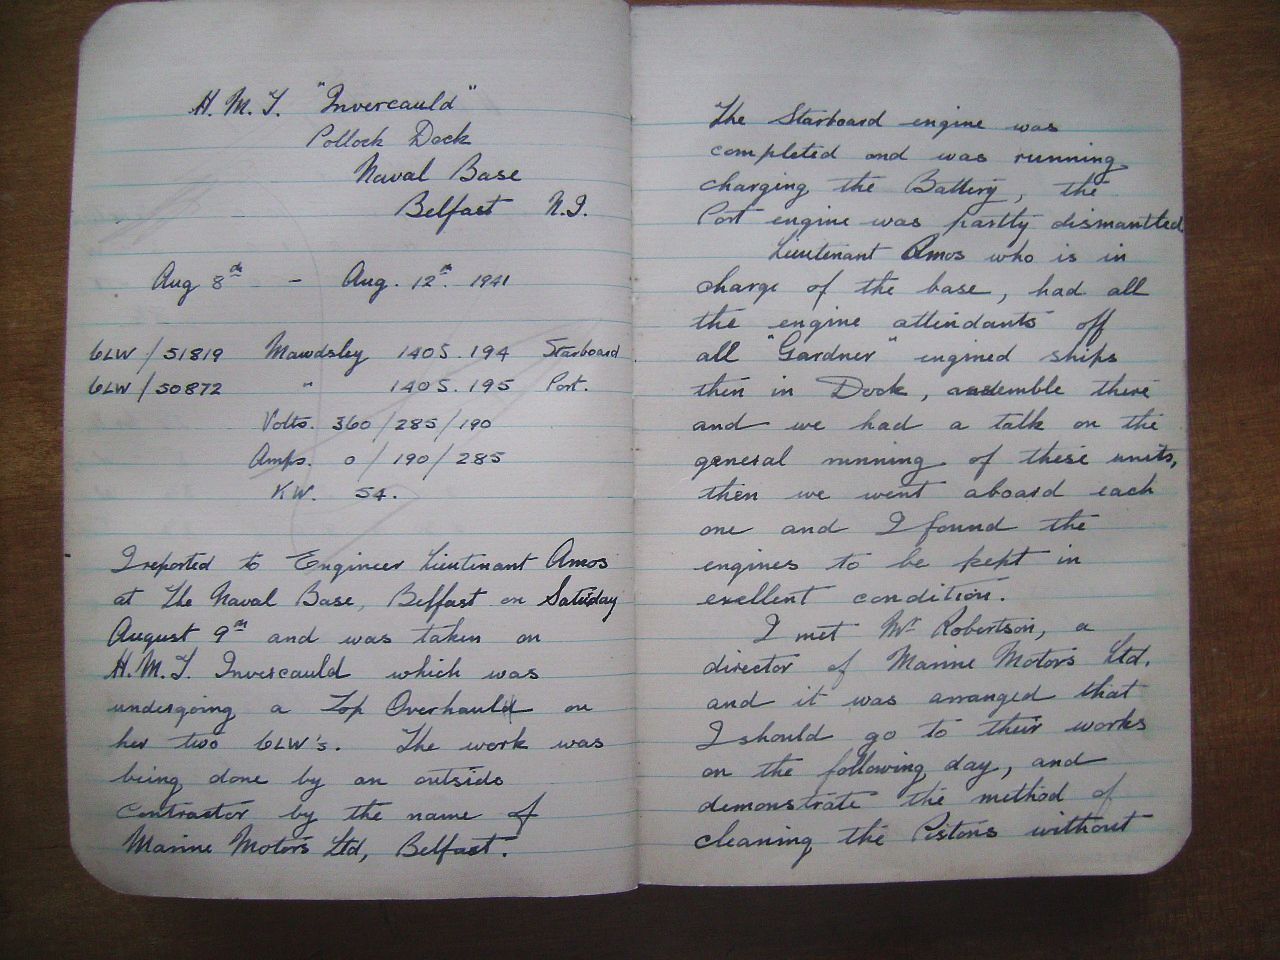 H. M. T. "Invercauld"
Pollock Dock
Naval Base
Belfast N.I.
Aug 8th - Aug. 12th. 1941
6LW / 51819 Mawdsley 1405.194 Starboard
6LW / 50872 " 1405.195 Port.
Volts. 360 / 285 / 190
Amps. 0 / 190 / 285
KW. 54.
I reported to Engineer Lieutenant Amos
at the Naval Base, Belfast on Saturday
August 9th and was taken on
H.M.T. Invercauld which was
undergoing a Top Overhaul on
her two 6LW's. The work was
being done by an outside
contractor by the name of
Marine Motors Ltd, Belfast.
The Starboard engine was
completed and was running
charging the Battery, the
Port engine was partly dismantled
Lieutenant Amos who is in
charge of the base, had all
the engine attendants off
all "Gardner" engined ships
then in Dock, assemble there
and we had a talk on the
general running of these units,
then we went aboard each
one and I found the
engines to be kept in
exellent condition.
I met Mr Robertson, a
director of Marine Motors Ltd.
and it was arranged that
I should go to their works
on the following day, and
demonstrate the method of
cleaning the Pistons without